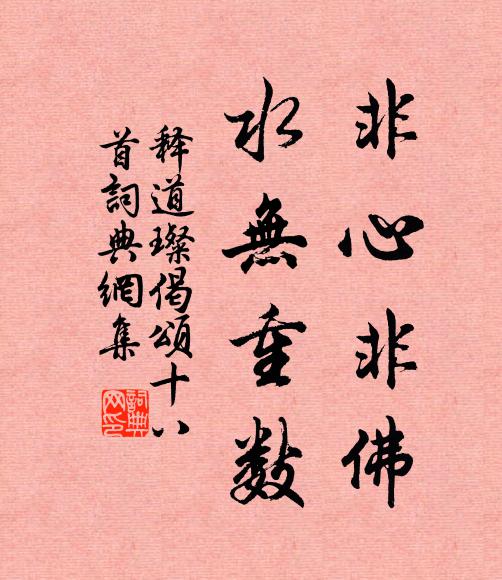 非心非佛
水無重數
释道璨偈頌十八
首詞典網集
詞典网印